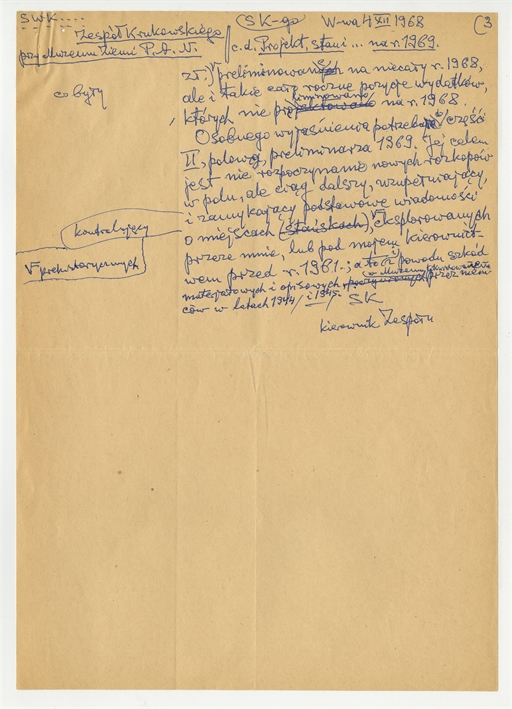 SWK....
Zespół Krukowskiego
przy Muzeum Ziemi P.A.N.
SK-go W-wa 4 XII 1968 (3
c.d. Projekt, stani ... na r. 1969.
co były
zł. preliminowanych na niecały r. 1968,
ale i takie cało roczne pozycje wydatków,
których nie preliminowano na r. 1968.
Osobnego wyjaśnienia potrzebuje część
II, polowa, preliminarza 1969. Jej celem
jest nie rozpoczynanie nowych rozkopów
w polu, ale ciąg dalszy, uzupełniający,
kontrolujący
i zamykający podstawowe wiadomości
o miejscach (stańskach), eksplorowanych
V prehistorycznych
przeze mnie, lub pod mojem kierownict-
wem przed r. 1961.; a to z powodu szkód
w Muzeum
materjałowych i opisowych przez niem-
ców w latach 1944 / i 1945. SK
kierownik Zespołu